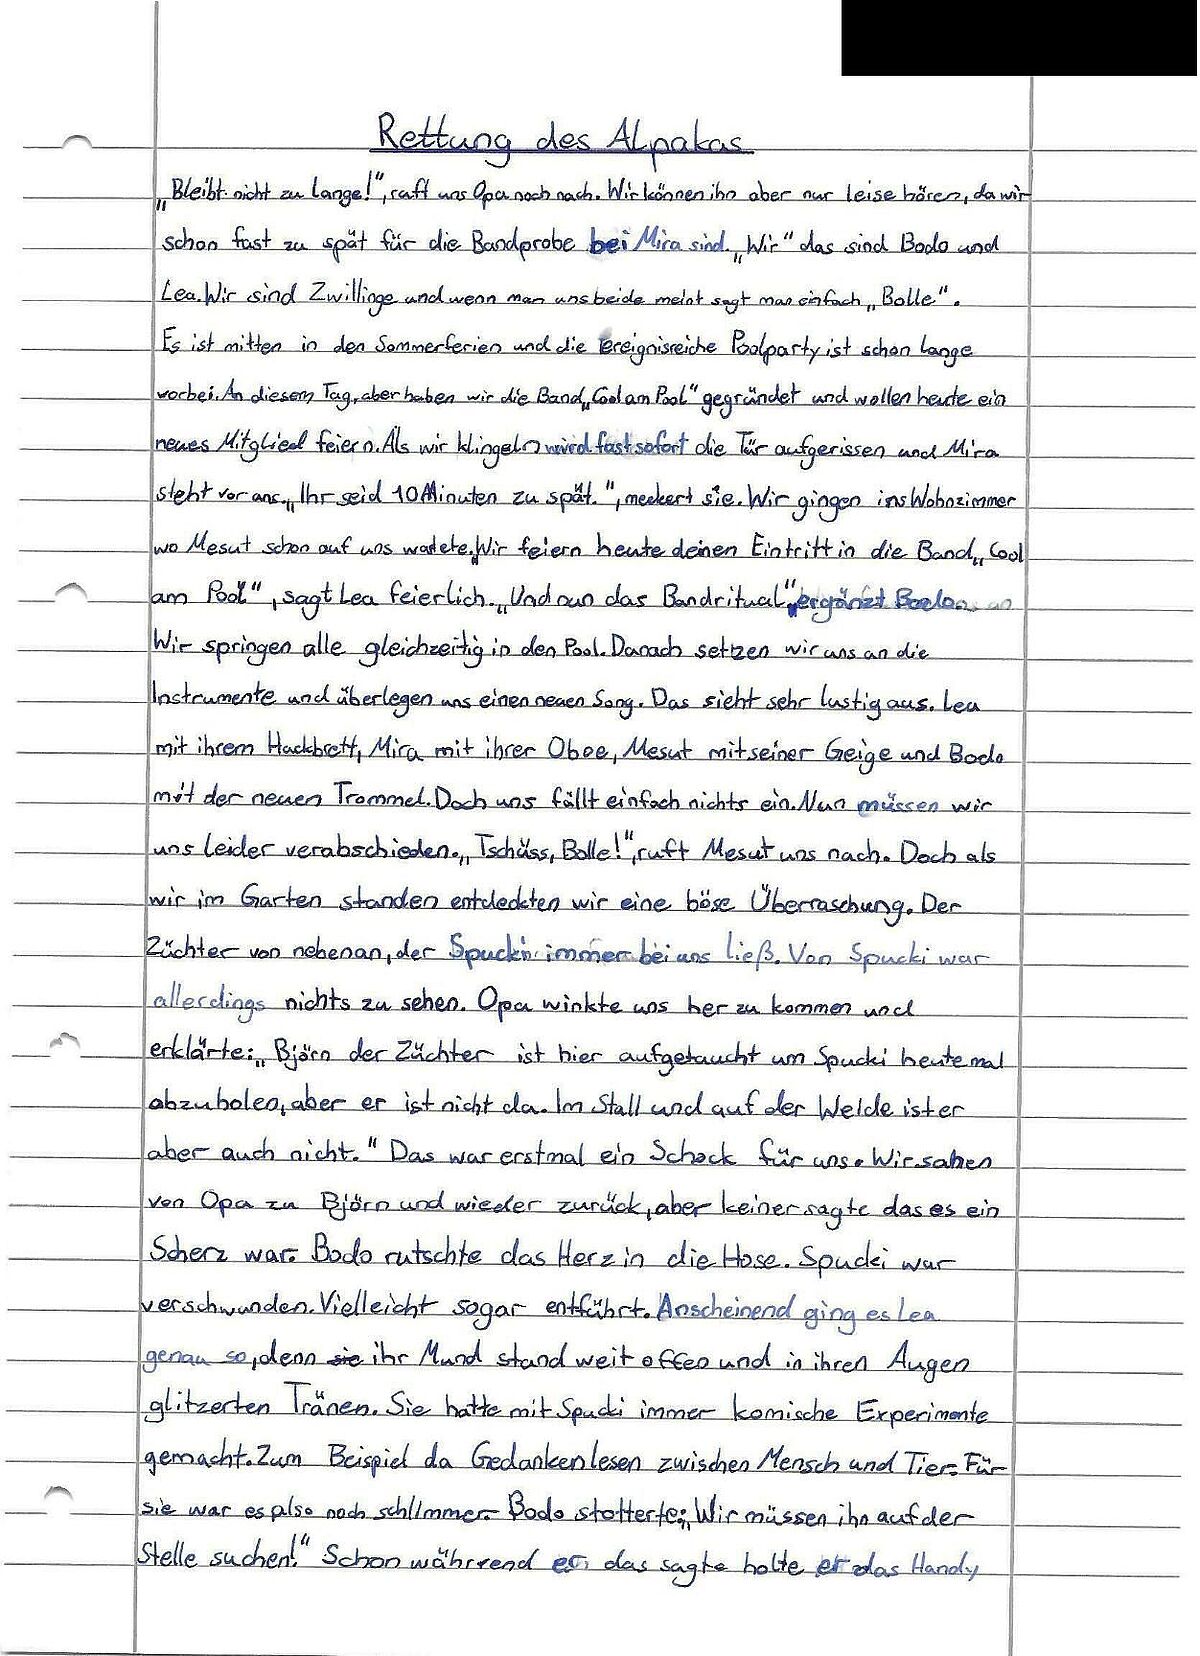 Rettung des Alpakas
„Bleibt nicht zu lange!", ruft uns Opa noch nach. Wir können ihn aber nur leise hören, da wir
schon fast zu spät für die Bandprobe bei Mira sind. „Wir" das sind Bodo und
Lea. Wir sind Zwillinge und wenn man uns beide meint sagt man einfach „Bolle".
Es ist mitten in den Sommerferien und die ereignisreiche Poolparty ist schon lange
vorbei. An diesem Tag, aber haben wir die Band „Cool am Pool" gegründet und wollen heute ein
neues Mitglied feiern. Als wir klingeln wird fast sofort die Tür aufgerissen und Mira
steht vor uns. „Ihr seid 10 Minuten zu spät.", meckert sie. Wir gingen ins Wohnzimmer
wo Mesut schon auf uns wartete. „Wir feiern heute deinen Eintritt in die Band „Cool
am Pool", sagt Lea feierlich. „Und nun das Bandritual", ergänzt Bodo.
Wir springen alle gleichzeitig in den Pool. Danach setzen wir uns an die
Instrumente und überlegen uns einen neuen Song. Das sieht sehr lustig aus. Lea
mit ihrem Hackbrett, Mira mit ihrer Oboe, Mesut mit seiner Geige und Bodo
mit der neuen Trommel. Doch uns fällt einfach nichts ein. Nun müssen wir
uns leider verabschieden. „Tschüss, Bolle!", ruft Mesut uns nach. Doch als
wir im Garten standen entdeckten wir eine böse Überraschung. Der
Züchter von nebenan, der Spucki immer bei uns ließ. Von Spucki war
allerdings nichts zu sehen. Opa winkte uns her zu kommen und
erklärte: „Björn der Züchter ist hier aufgetaucht um Spucki heute mal
abzuholen, aber er ist nicht da. Im Stall und auf der Weide ist er
aber auch nicht." Das war erstmal ein Schock für uns. Wir sahen
von Opa zu Björn und wieder zurück, aber keiner sagte das es ein
Scherz war. Bodo rutschte das Herz in die Hose. Spucki war
verschwunden. Vielleicht sogar entführt. Anscheinend ging es Lea
genau so, denn sie ihr Mund stand weit offen und in ihren Augen
glitzerten Tränen. Sie hatte mit Spucki immer komische Experimente
gemacht. Zum Beispiel da Gedankenlesen zwischen Mensch und Tier. Für
sie war es also noch schlimmer. Bodo stotterte: „Wir müssen ihn auf der
Stelle suchen!" Schon während er das sagte holte er das Handy